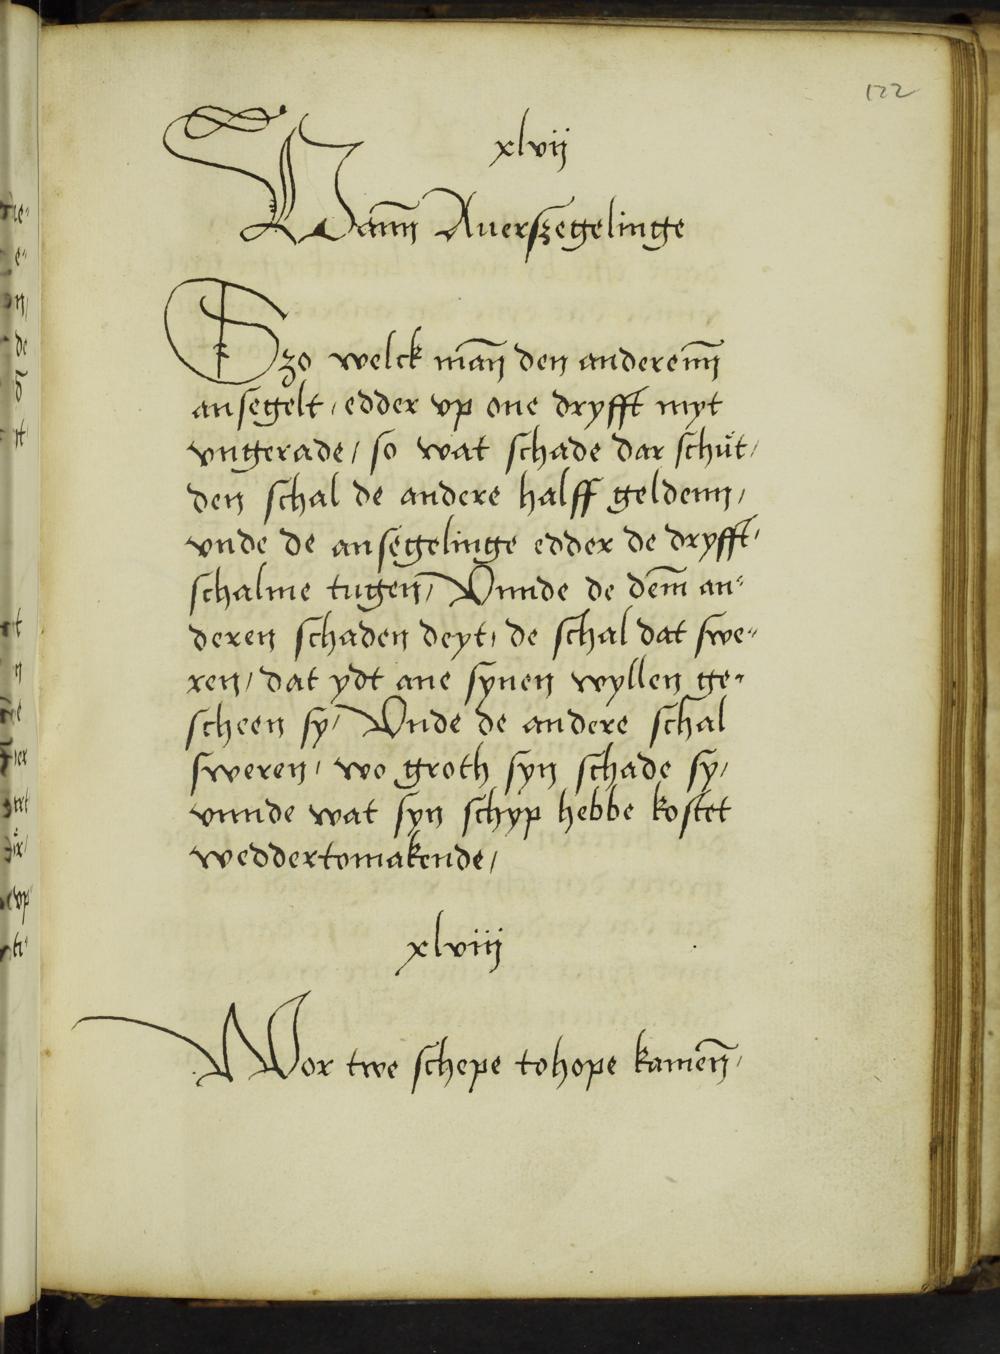 122
xlvij
Vann̄ Auerszegelinge
Szo welck man̄ den anderenn̄
ansegelt, edder vp one dryfft myt
vngerade, so wat schade dar schüt,
den schal de andere halff geldenn,
vnde de ansegelinge edder de dryfft,
schalme tugen, Vnnde de dem̄ an-
deren schaden deyt, de schal dat swe-
ren, dat ydt ane synen wyllen ge-
scheen sy, Vnde de andere schal
sweren, wo groth syn schade sy,
vnnde wat syn schyp hebbe kostet
weddertomakende,
xlviij
Wor twe schepe tohope kamen̄,